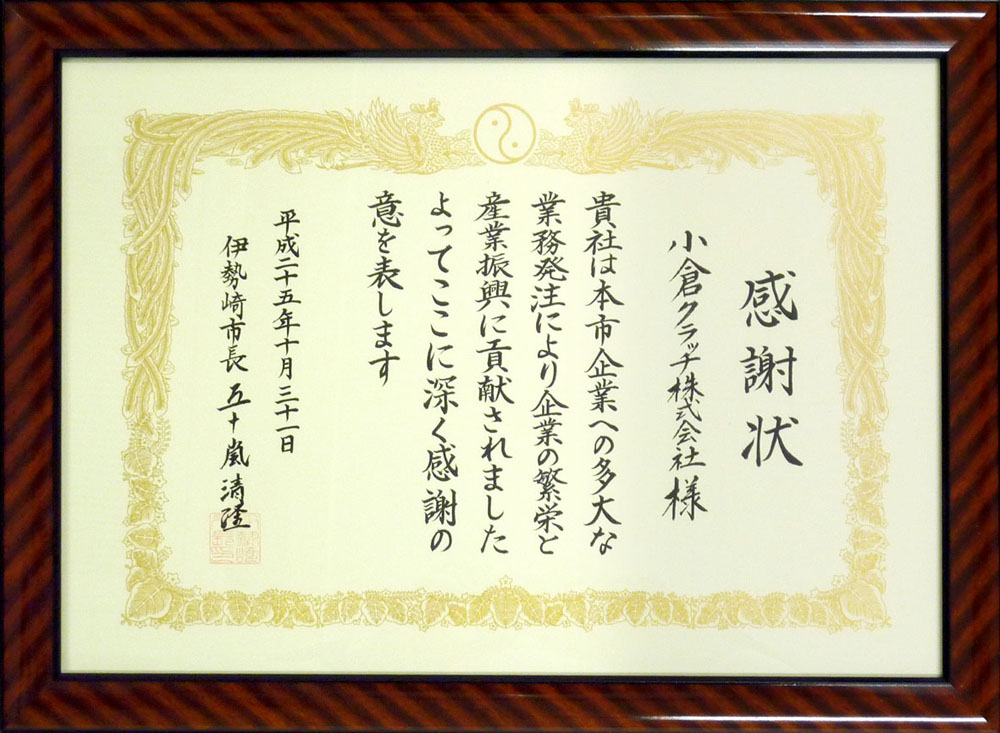 感謝状
小倉クラッチ株式会社様
貴社は本市企業への多大な
業務発注により企業の繁栄と
産業振興に貢献されました
よってここに深く感謝の
意を表します
平成二十五年十月三十一日
伊勢崎市長 五十嵐清隆